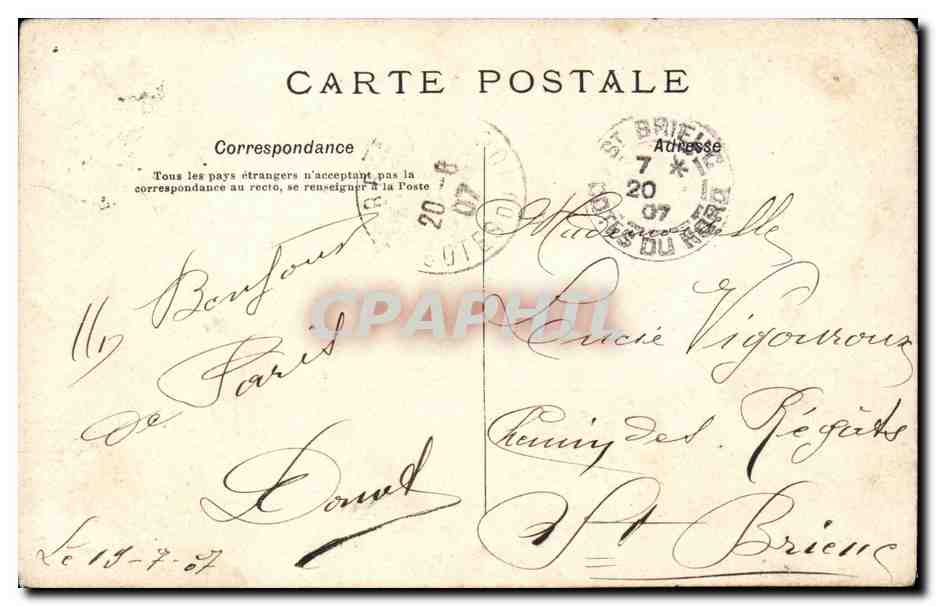 CARTE POSTALE
Correspondance
Tous les pays étrangers n'acceptent pas la
correspondance au recto, se renseigner à la Poste
Adresse
ST BRIEUC
7 *
20
07
COTES DU NORD
20 - 8
07
COTES D
Bonjour
de Paris
Le 19-7-07
Mademoiselle
Lucie Vigouroux
Chemin des Régats
St Brieuc
CPAPHIL